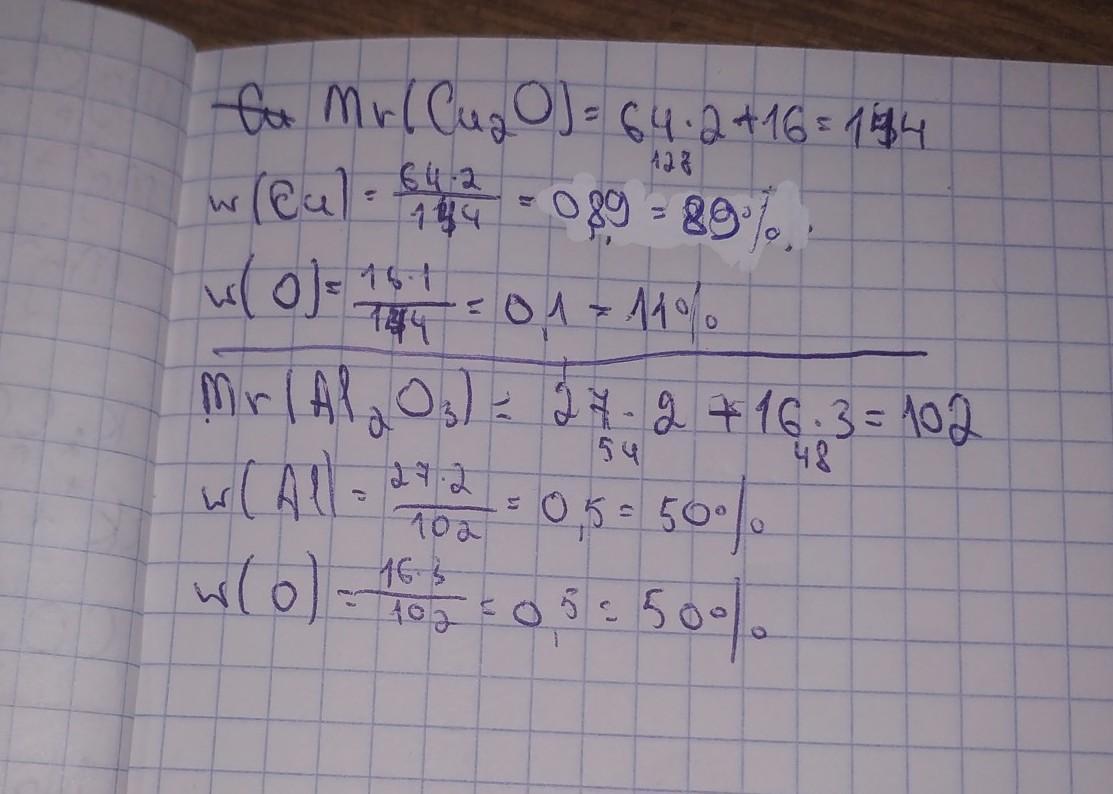 Mr(Cu₂O) = 64·2+16 = 144
128
w(Cu) = 64·2/144 = 0,89 = 89%
w(O) = 16·1/144 = 0,1 = 11%
Mr(Al₂O₃) = 27·2 + 16·3 = 102
54 48
w(Al) = 27·2/102 = 0,5 = 50%
w(O) = 16·3/102 = 0,5 = 50%